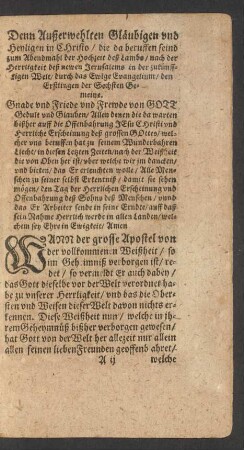 Denn Außerwehlten Gläubigen vnd
Heyligen in CHristo / die da beruffen seind
zum Abendmahl der Hochzeit deß Lambs / nach der
Herrligkeit deß newen Jerusalems in der zukünff-
tigen Welt / durch das Ewige Evangelium / den
Erstlingen der Sechsten Ge-
meine.
Gnade vnd Friede vnd Frewde von GOTT
Gedult vnd Glauben / Allen denen die da warten
bißher auff die Offenbahrung JEsu CHristi vnd
Herrliche Erscheinung deß grossen GOttes / wel-
cher vns beruffen hat zu seinem Wunderbahren
Liecht / in diesen Letzten Zeiten / nach der Weißheit
die von Oben her ist / vber welche wir jm dancken /
vnd bitten / das Er erleuchten wolle / Alle Men-
schen zu seiner selbst Erkentnuß / damit sie sehen
mögen / den Tag der Herrlichen Erscheinung vnd
Offenbahrung deß Sohns deß Menschen / vnnd
das Er Arbeiter sende in seine Erndte / auff daß
sein Nahme Herrlich werde in allen Landen / wel-
chem sey Ehre in Ewigkeit / Amen
WANN der grosse Apostel von
der vollkommenen Weißheit / so
im Geheimnuß verborgen ist / re-
det / so vermeldt Er auch dabey /
das Gott dieselbe vor der Welt verordnet ha-
be zu vnserer Herrligkeit / vnd das die Ober-
sten vnd Weisen dieser Welt davon nichts er-
kennen. Diese Weißheit nun / welche in ih-
rem Geheymnüß bißher verborgen gewesen /
hat Gott von der Welt her allezeit nur allein
allen seinen lieben Freunden geoffenbahret /
A ij welche